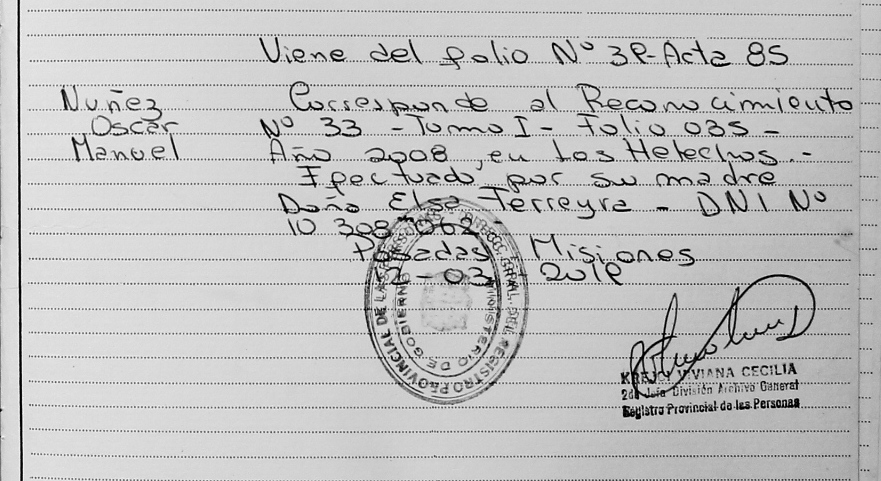 Viene del folio Nº 38-Acta 85
Nuñez
Oscar
Manuel
Corresponde al Reconocimiento
Nº 33 - Tomo I - Folio 035 -
Año 2008, en Los Helechos.-
Efectuado por su madre
Doña Elsa Ferreyra - DNI Nº
10 308 062 -
Posadas, Misiones
-03- 2018
REGISTRO PROVINCIAL DE LAS PERSONAS
MINISTERIO DE GOBIERNO
KREJCI VIVIANA CECILIA
2da Jefa División Archivo General
Registro Provincial de las Personas